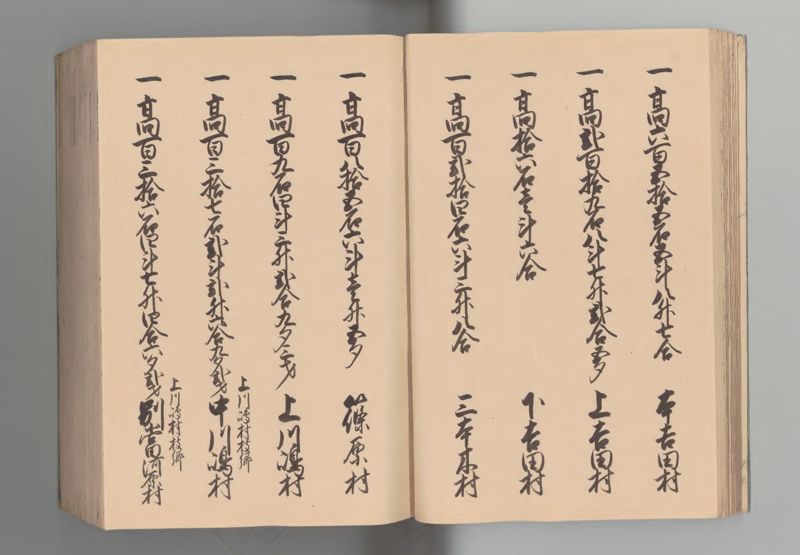 一 高六百五拾五石五斗八升七合 本吉田村
一 高弐百拾九石八斗七升弐合五夕 上吉田村
一 高拾六石壱斗六合 下吉田村
一 高百弐拾四石六斗三升八合 三本木村
一 高百八拾五石六斗壱升五夕 篠原村
一 高百九石四斗三升弐合九夕三才 上川嶋村
上川嶋村枝郷
一 高百三拾七石弐斗弐升六合九夕弐才 中川嶋村
上川嶋村枝郷
一 高百三拾六石四斗七升四合六夕弐才 別当河原村